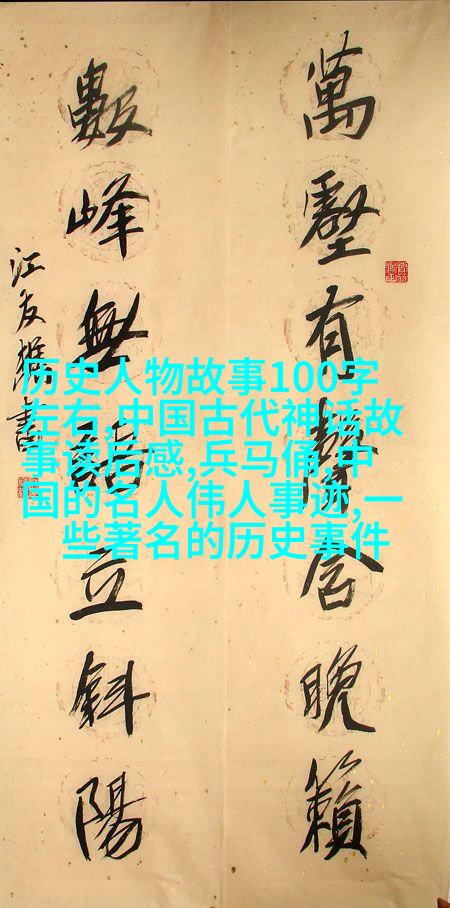 萬壑有聲含晚籟
數峰無語立斜陽
江友樵書
历史人物故事100字
左右,中国古代神话故
事读后感,兵马俑,中
国的名人伟人事迹,一
些著名的历史事件